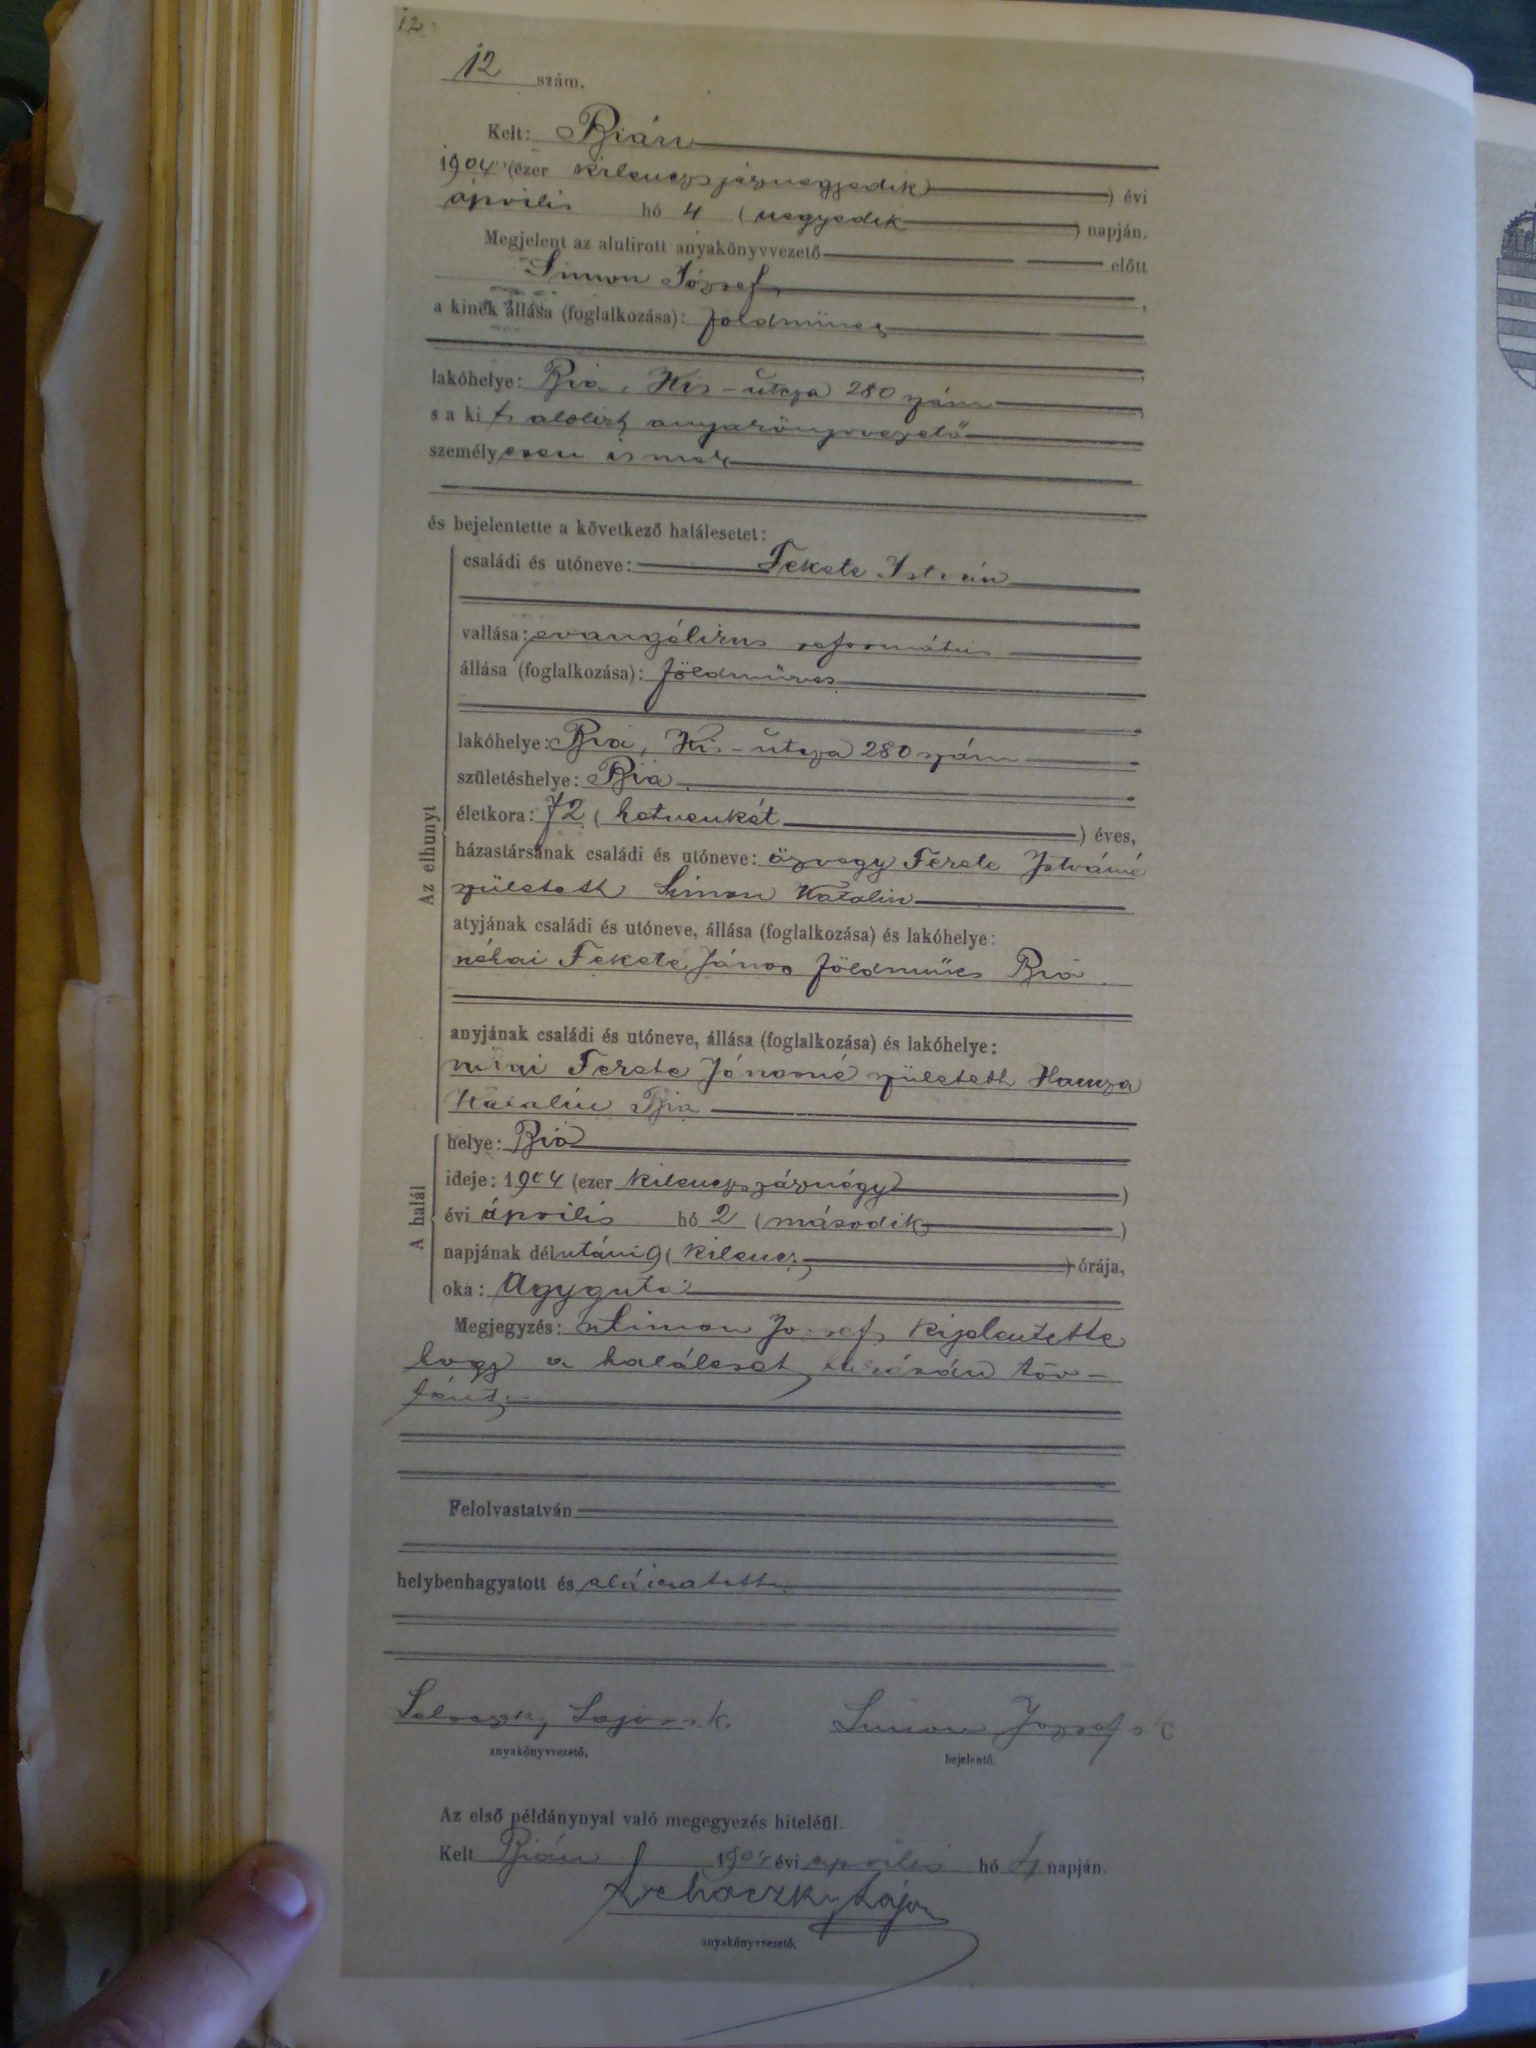 12
12 szám.
Kelt: Bián
1904 (ezer kilenczszáznegyedik) évi
április hó 4 (negyedik) napján.
Megjelent az alulirott anyakönyvvezető előtt
Simon József,
a kinek állása (foglalkozása): földmüves
lakóhelye: Bia, Kis-útcza 280 szám,
s a kit alolirt anyakönyvvezető
személyesen ismer
és bejelentette a következő halálesetet:
Az elhunyt
családi és utóneve: Fekete István
vallása: evangélikus református
állása (foglalkozása): földmüves
lakóhelye: Bia, Kis-útcza 280 szám
születéshelye: Bia
életkora: 72 (hetvenkét) éves,
házastársának családi és utóneve: özvegy Fekete Istvánné
születeth Simon Katalin
atyjának családi és utóneve, állása (foglalkozása) és lakóhelye:
néhai Fekete János földműves Bia
anyjának családi és utóneve, állása (foglalkozása) és lakóhelye:
Fekete Jánosné születeth Hamza
Katalin Bia
A halál
helye: Bia
ideje: 1904 (ezer kilenczszáznégy)
évi április hó 2 (második)
napjának délutáni 9 (kilencz) órája,
oka: Agyguta
Megjegyzés: Simon József kijelentette
hogy a haláleset tör-
tént
Felolvastatván
helybenhagyatott és aláiratott
Lajos s. k. Simon József s k
anyakönyvvezető. bejelentő.
Az első példánynyal való megegyezés hiteléűl.
Kelt Bián 1904 évi április hó 4 napján.
Lajos
anyakönyvvezető.